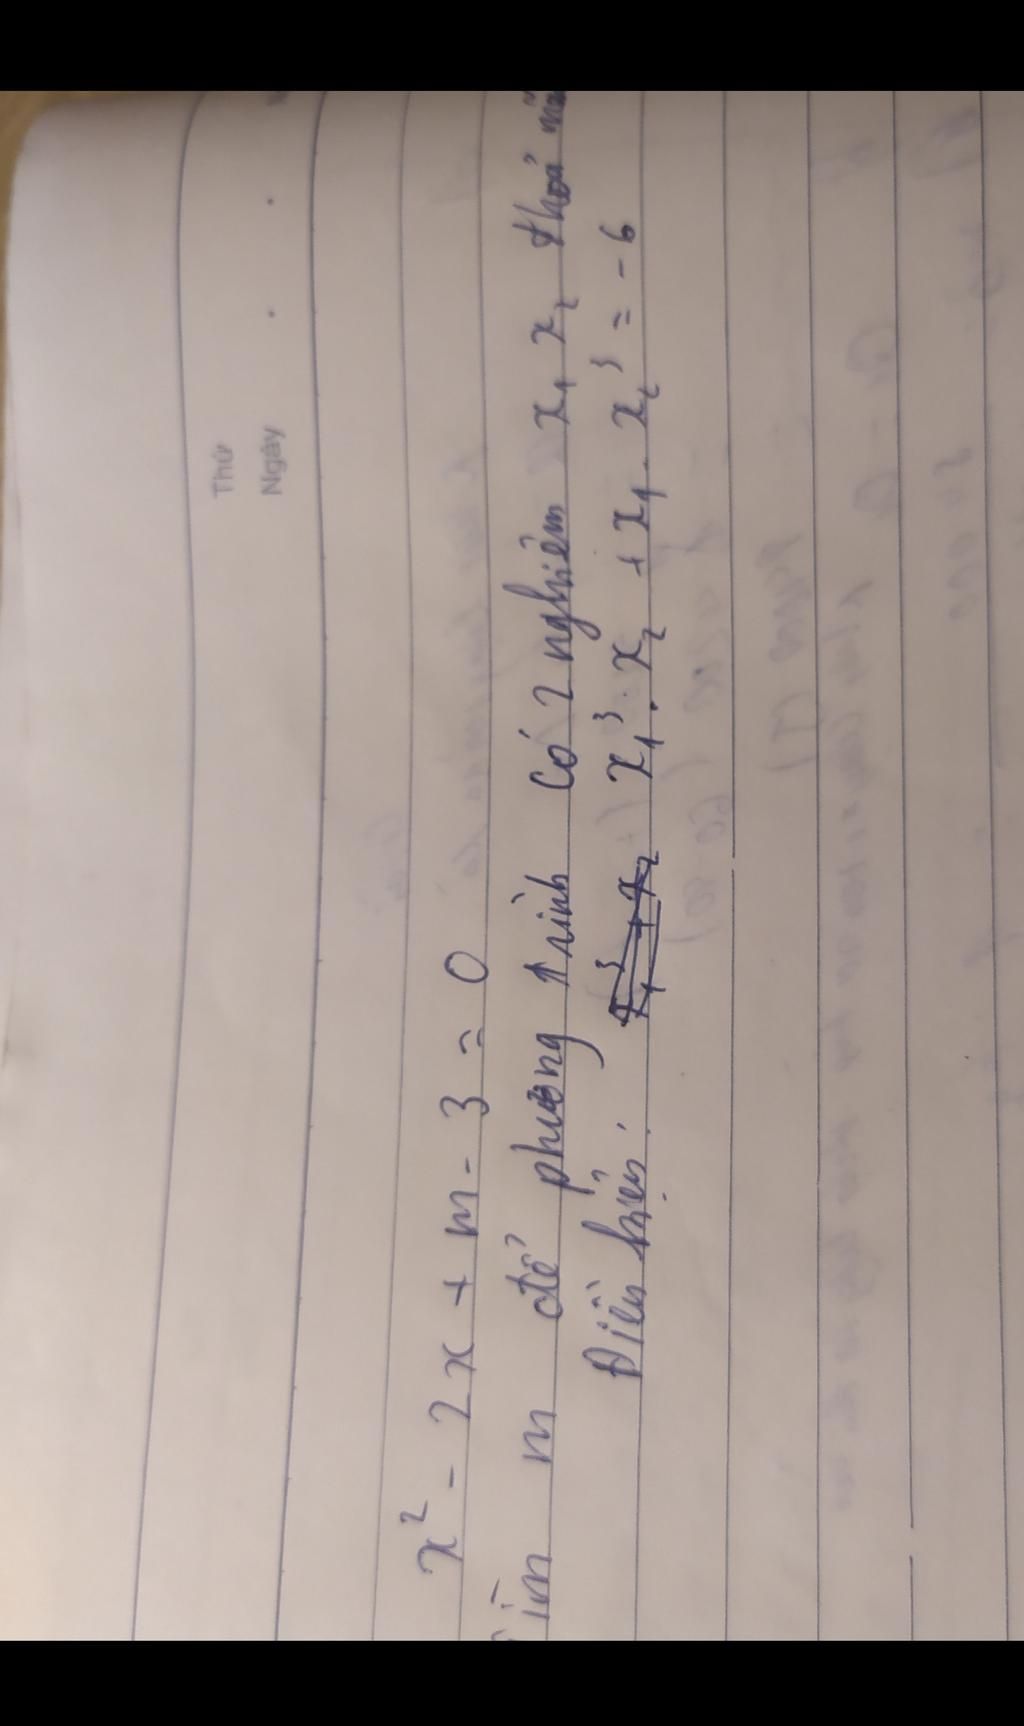 Thứ
Ngày
x² - 2x + m - 3 = 0
Tìm m để phương trình có 2 nghiệm x₁ x₂ thoả mãn
Điều kiện: x₁³. x₂ + x₁. x₂³ = -6